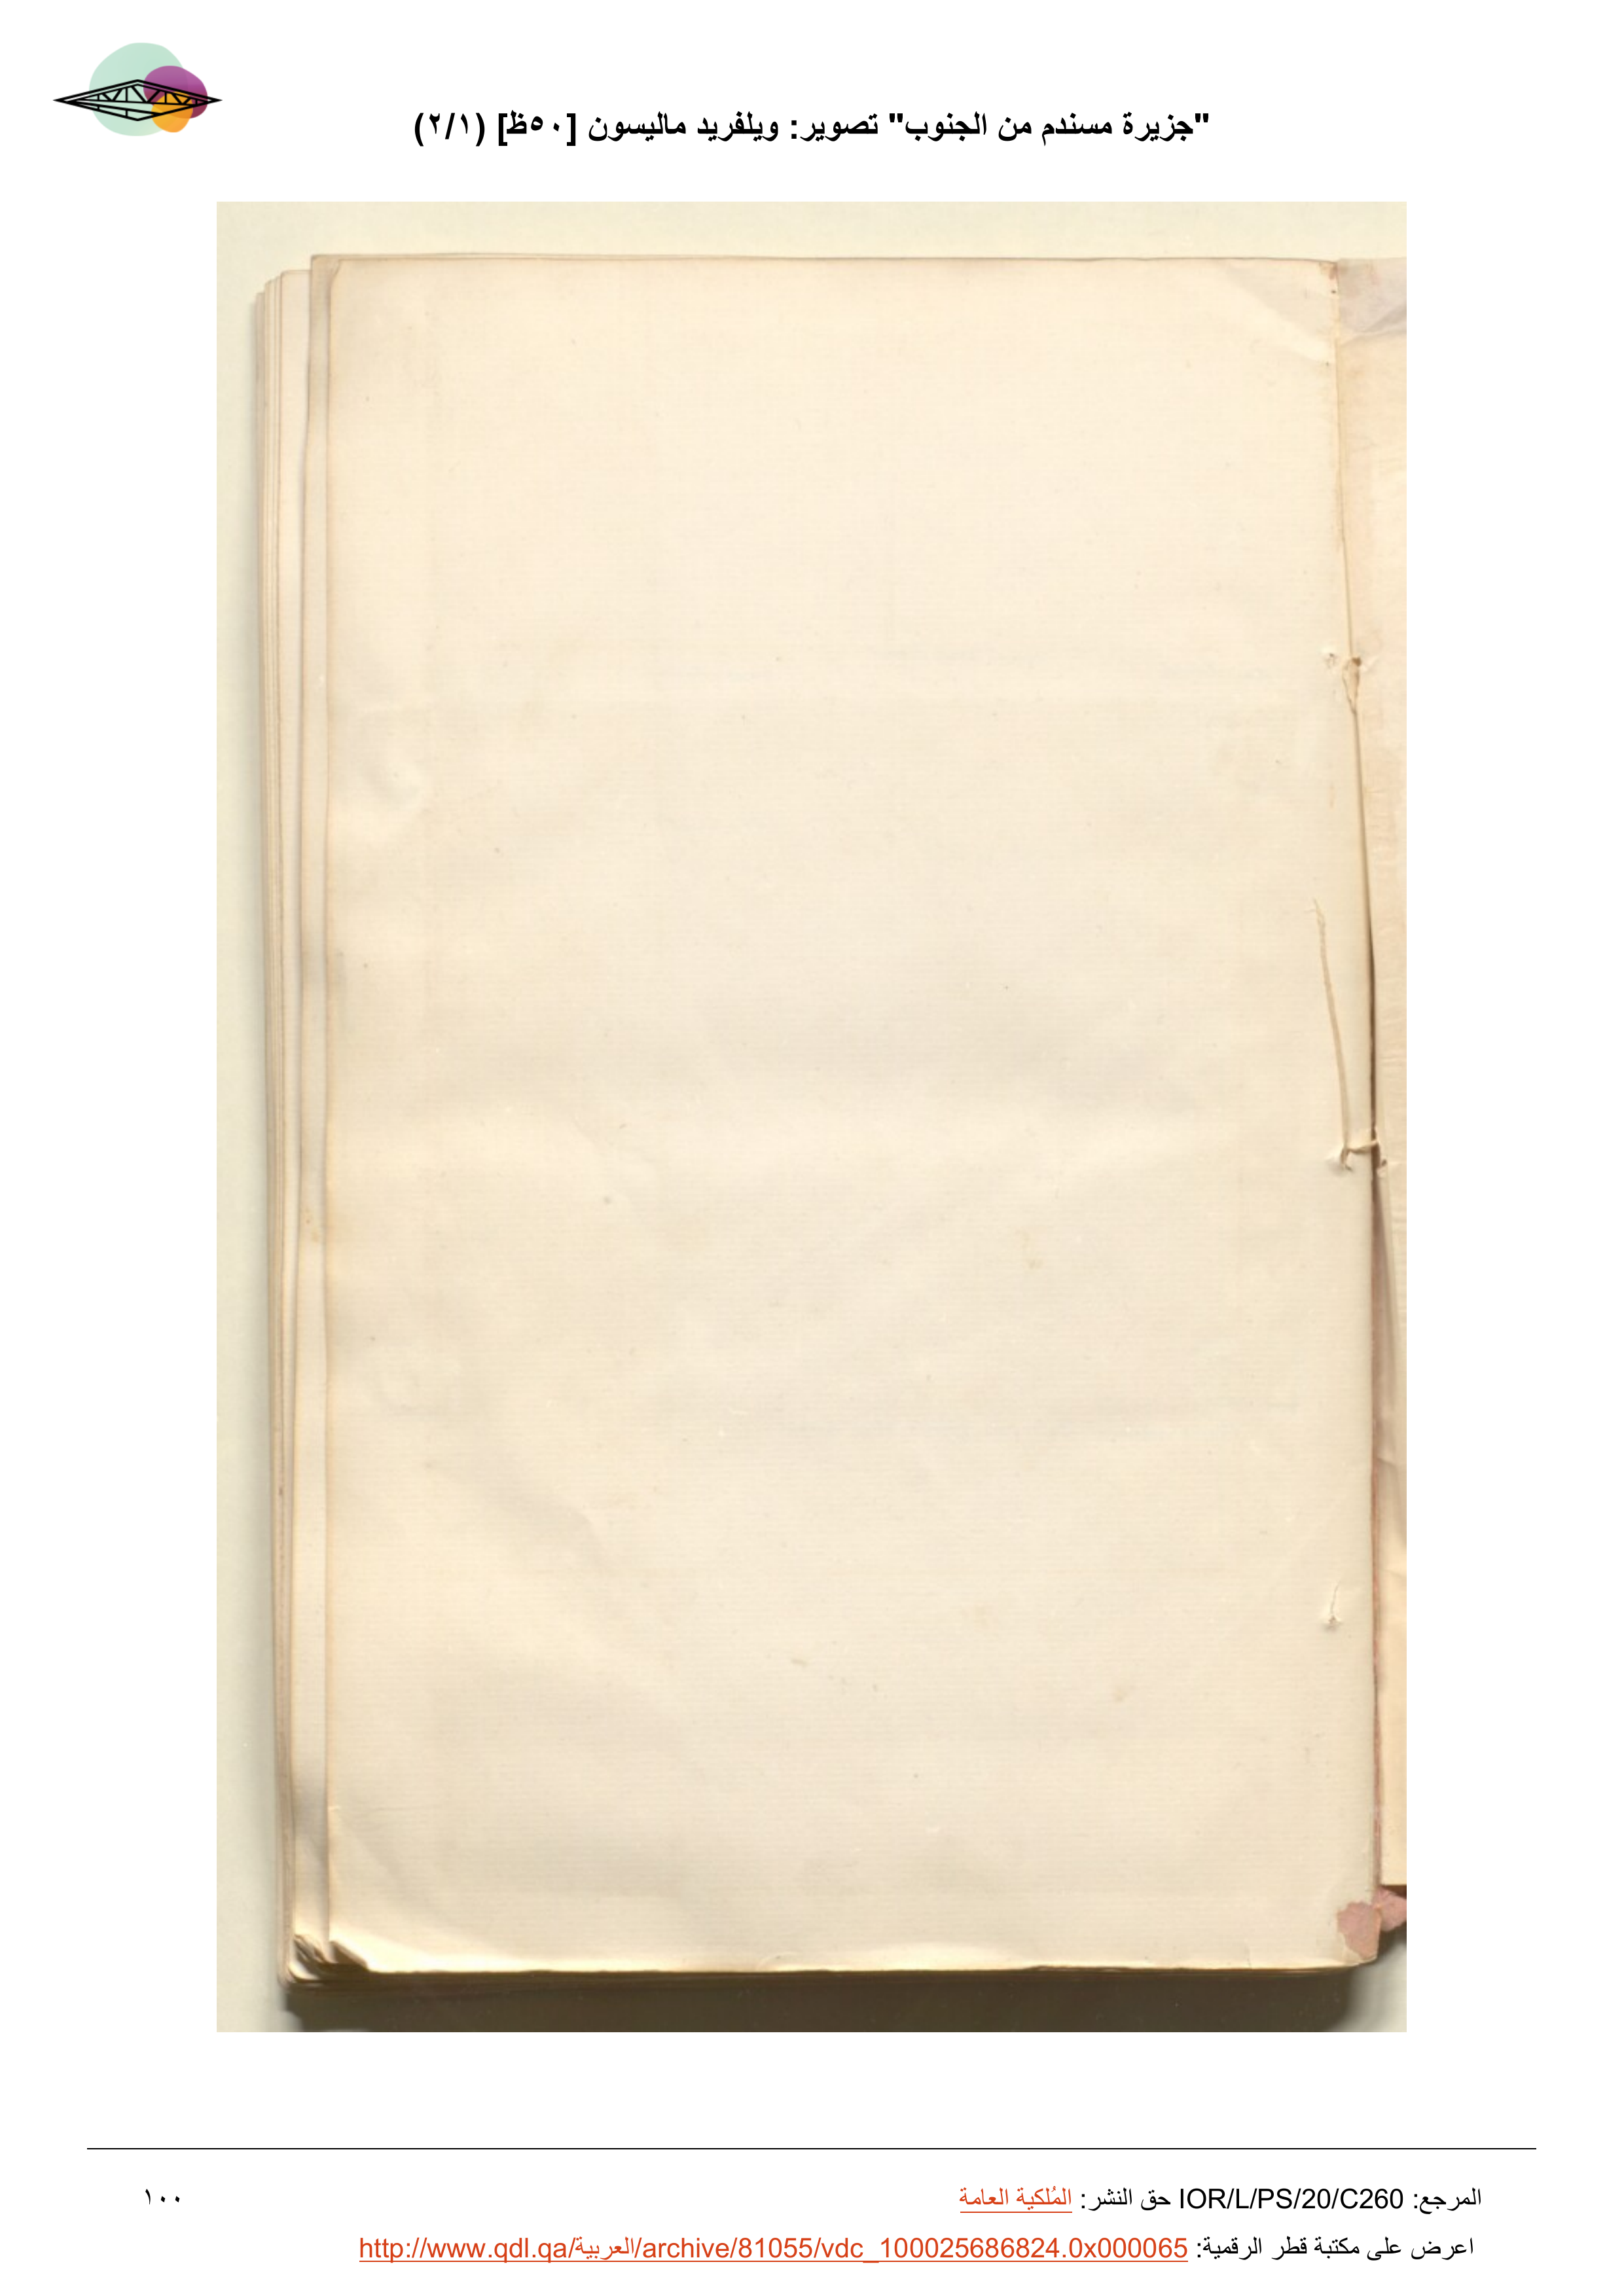 "جزيرة مسندم من الجنوب" تصوير: ويلفريد ماليسون [٥٠ظ] (٢/١)
المرجع: IOR/L/PS/20/C260 حق النشر: المُلكية العامة
١٠٠
اعرض على مكتبة قطر الرقمية: http://www.qdl.qa/العربية/archive/81055/vdc_100025686824.0x000065